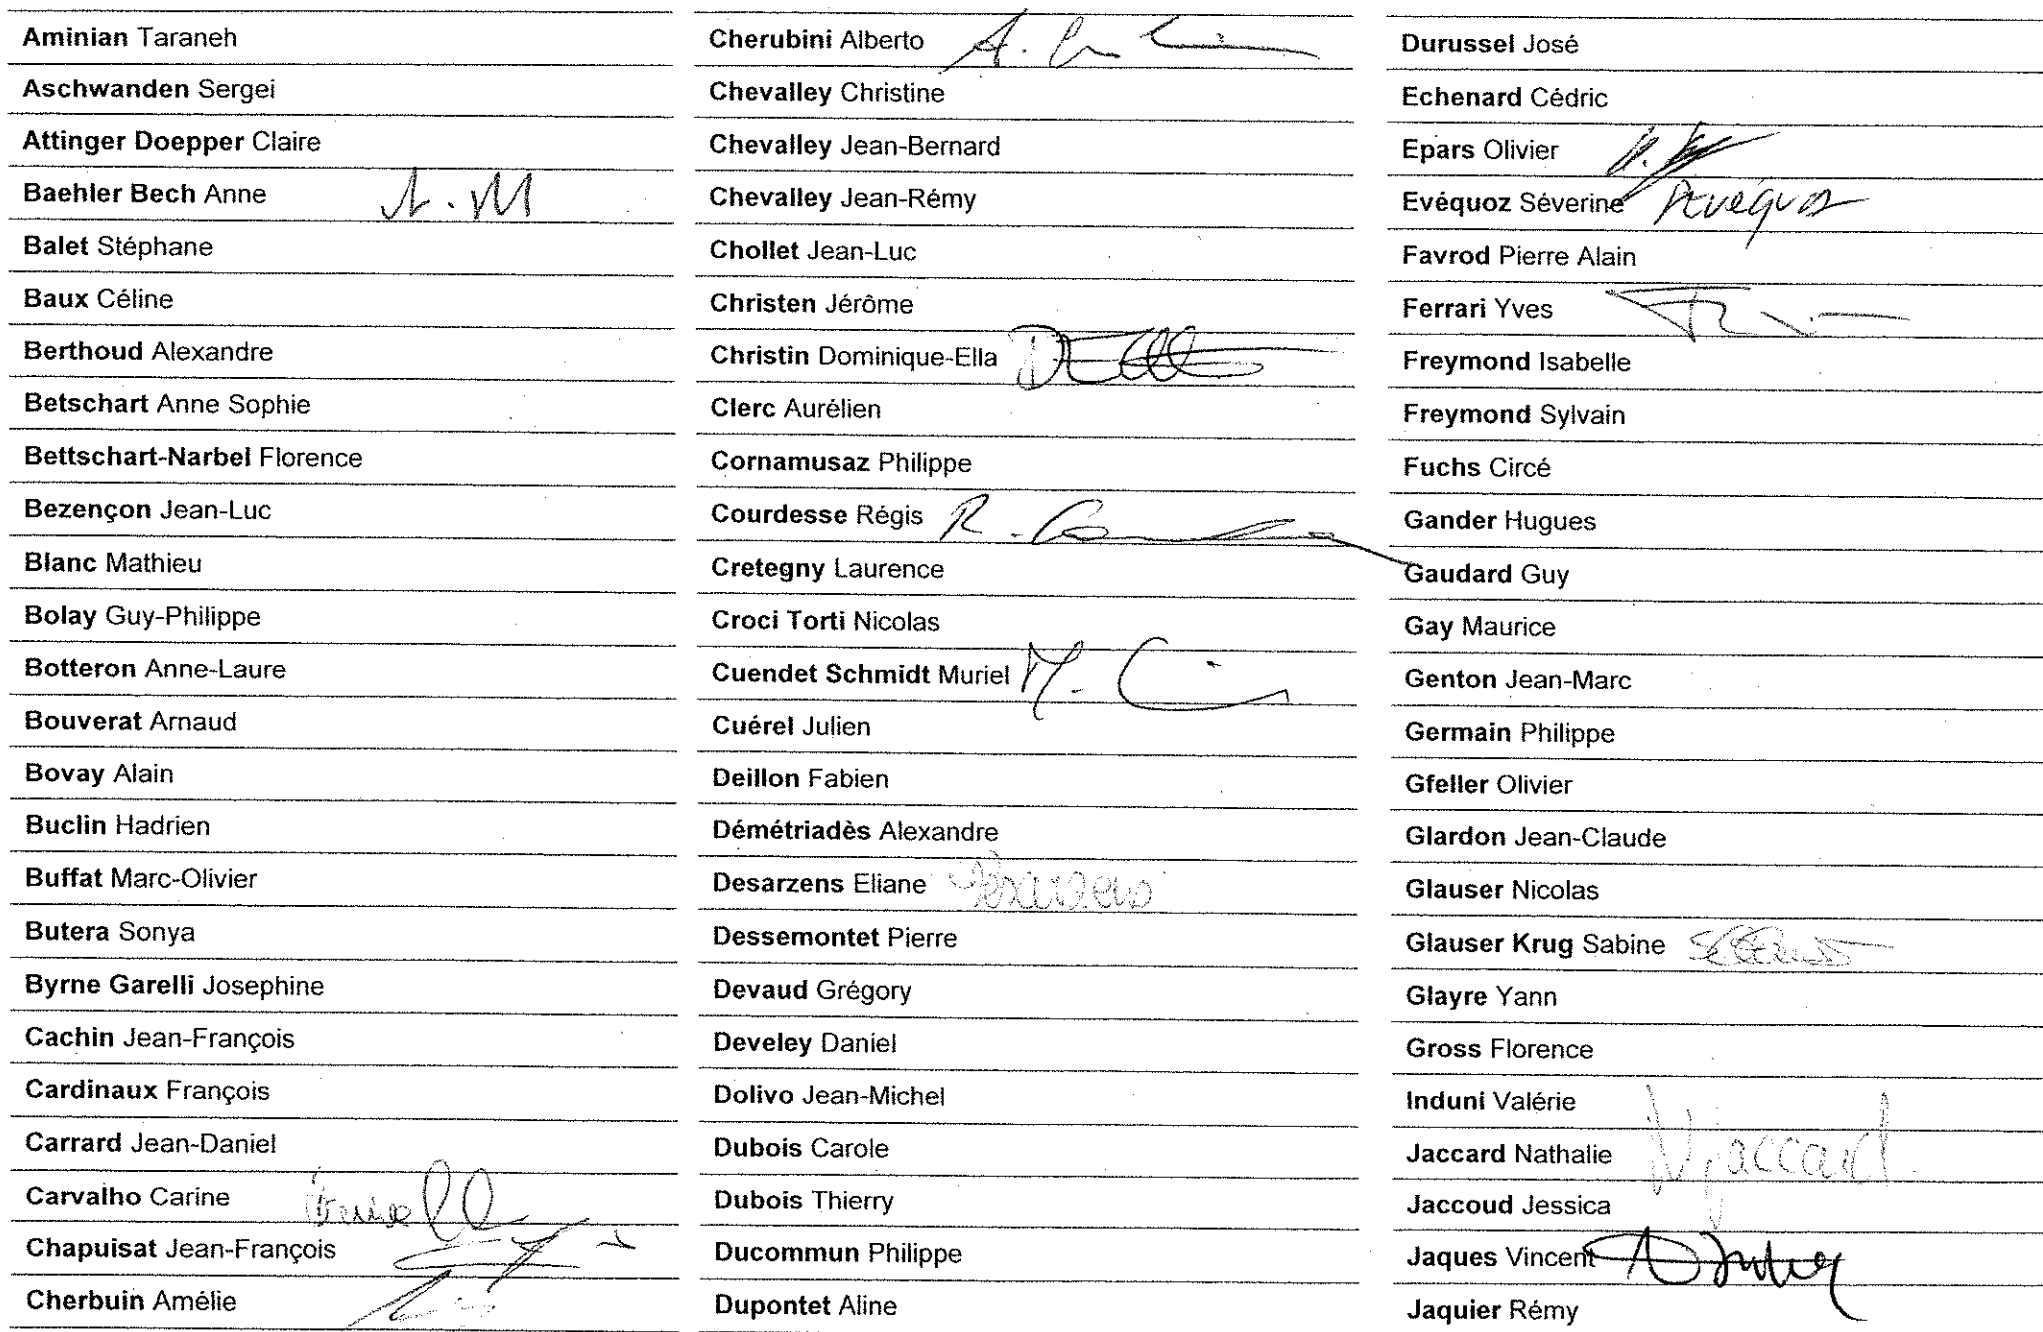 Aminian Taraneh
Aschwanden Sergei
Attinger Doepper Claire
Baehler Bech Anne
Balet Stéphane
Baux Céline
Berthoud Alexandre
Betschart Anne Sophie
Bettschart-Narbel Florence
Bezençon Jean-Luc
Blanc Mathieu
Bolay Guy-Philippe
Botteron Anne-Laure
Bouverat Arnaud
Bovay Alain
Buclin Hadrien
Buffat Marc-Olivier
Butera Sonya
Byrne Garelli Josephine
Cachin Jean-François
Cardinaux François
Carrard Jean-Daniel
Carvalho Carine
Chapuisat Jean-François
Cherbuin Amélie
Cherubini Alberto
Chevalley Christine
Chevalley Jean-Bernard
Chevalley Jean-Rémy
Chollet Jean-Luc
Christen Jérôme
Christin Dominique-Ella
Clerc Aurélien
Cornamusaz Philippe
Courdesse Régis
Cretegny Laurence
Croci Torti Nicolas
Cuendet Schmidt Muriel
Cuérel Julien
Deillon Fabien
Démétriadès Alexandre
Desarzens Eliane
Dessemontet Pierre
Devaud Grégory
Develey Daniel
Dolivo Jean-Michel
Dubois Carole
Dubois Thierry
Ducommun Philippe
Dupontet Aline
Durussel José
Echenard Cédric
Epars Olivier
Evéquoz Séverine
Favrod Pierre Alain
Ferrari Yves
Freymond Isabelle
Freymond Sylvain
Fuchs Circé
Gander Hugues
Gaudard Guy
Gay Maurice
Genton Jean-Marc
Germain Philippe
Gfeller Olivier
Glardon Jean-Claude
Glauser Nicolas
Glauser Krug Sabine
Glayre Yann
Gross Florence
Induni Valérie
Jaccard Nathalie N. Jaccard
Jaccoud Jessica
Jaques Vincent
Jaquier Rémy